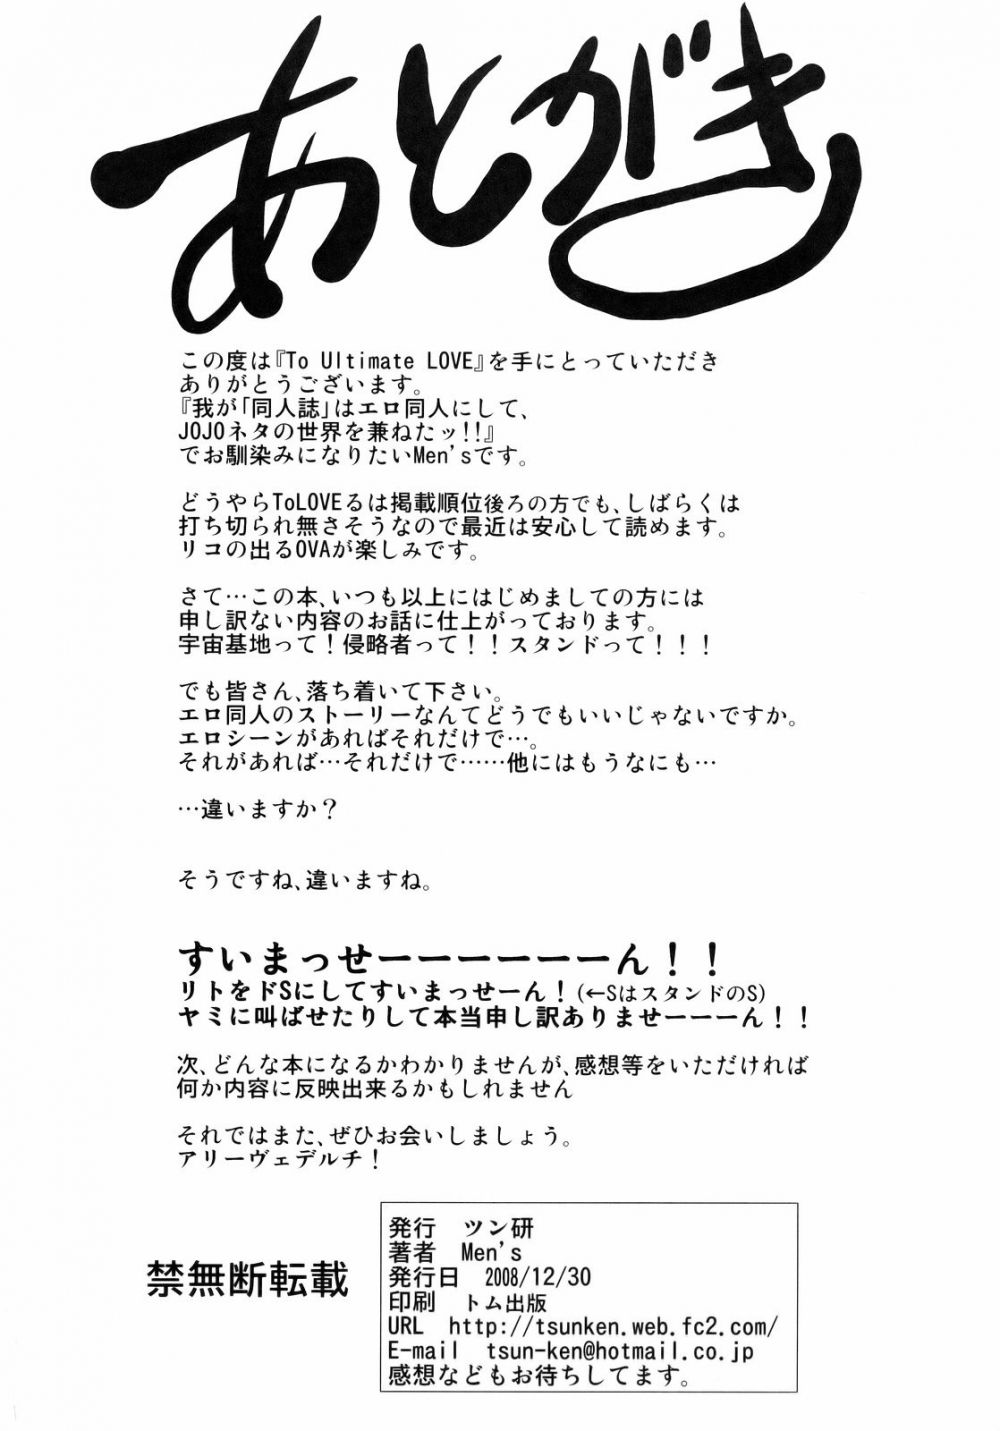 あとがき
この度は『To Ultimate LOVE』を手にとっていただき
ありがとうございます。
『我が「同人誌」はエロ同人にして、
JOJOネタの世界を兼ねたッ!!』
でお馴染みになりたいMen'sです。
どうやらToLOVEるは掲載順位後ろの方でも、しばらくは
打ち切られ無さそうなので最近は安心して読めます。
リコの出るOVAが楽しみです。
さて…この本、いつも以上にはじめましての方には
申し訳ない内容のお話に仕上がっております。
宇宙基地って！侵略者って！！スタンドって！！！
でも皆さん、落ち着いて下さい。
エロ同人のストーリーなんてどうでもいいじゃないですか。
エロシーンがあればそれだけで…。
それがあれば…それだけで……他にはもうなにも…
…違いますか？
そうですね、違いますね。
すいまっせーーーーーーん！！
リトをドSにしてすいまっせーん！(←SはスタンドのS)
ヤミに叫ばせたりして本当申し訳ありませーーーん！！
次、どんな本になるかわかりませんが、感想等をいただければ
何か内容に反映出来るかもしれません
それではまた、ぜひお会いしましょう。
アリーヴェデルチ！
禁無断転載
発行　ツン研
著者　Men's
発行日　2008/12/30
印刷　トム出版
URL　http://tsunken.web.fc2.com/
E-mail　tsun-ken@hotmail.co.jp
感想などもお待ちしてます。